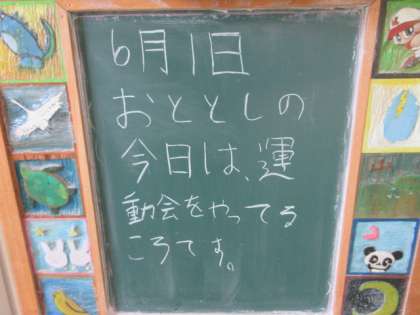 6月1日
おととしの
今日は、運
動会をやってる
ころです。